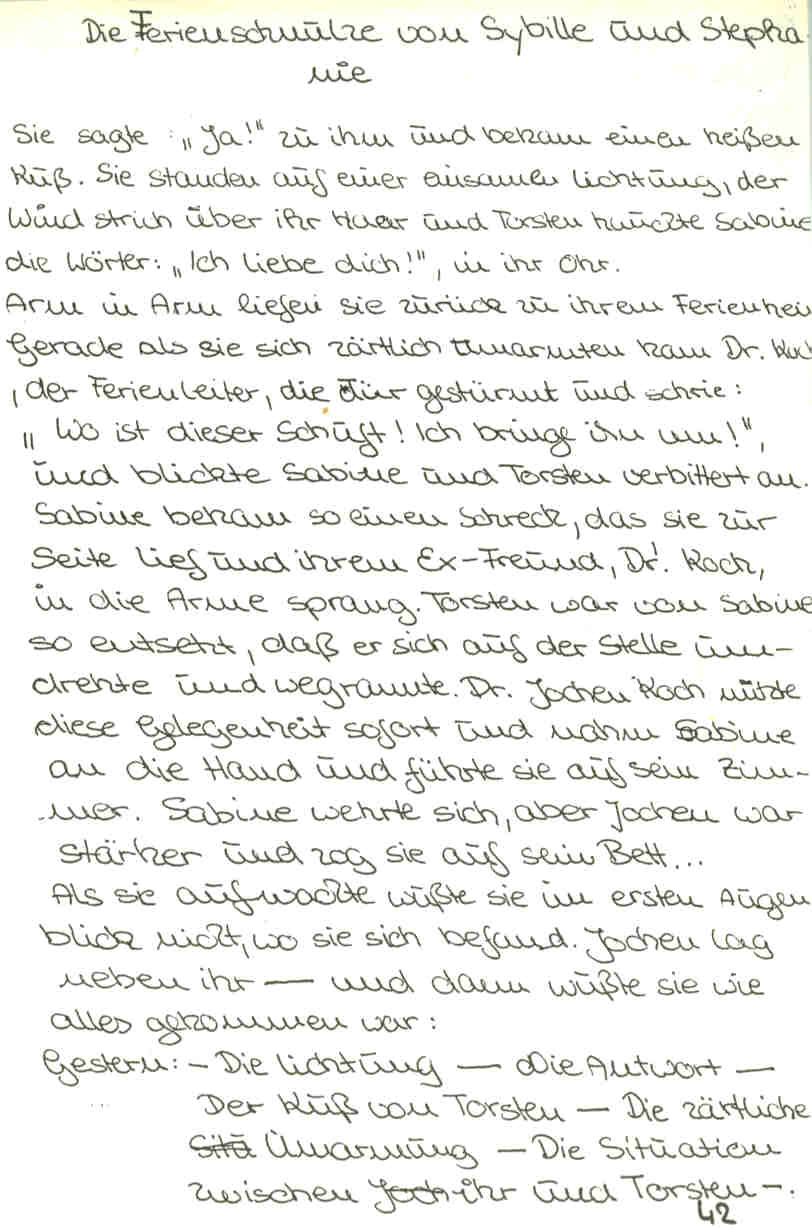 Die Ferienschnulze von Sybille und Stepha
nie
Sie sagte: „Ja!“ zu ihm und bekam einen heißen
Kuß. Sie standen auf einer einsamen Lichtung, der
Wind strich über ihr Haar und Torsten hauchte Sabine
die Wörter: „Ich liebe dich!“, in ihr Ohr.
Arm in Arm liefen sie zurück zu ihrem Ferienhei
Gerade als sie sich zärtlich umarmten kam Dr. Koc
, der Ferienleiter, die Tür gestürmt und schrie:
„Wo ist dieser Schuft! Ich bringe ihn um!“,
und blickte Sabine und Torsten verbittert an.
Sabine bekam so einen Schreck, das sie zur
Seite lief und ihrem Ex-Freund, Dr. Koch,
in die Arme sprang. Torsten war von Sabine
so entsetzt, daß er sich auf der Stelle um-
drehte und wegrannte. Dr. Jochen Koch nützte
diese Gelegenheit sofort und nahm Sabine
an die Hand und führte sie auf sein Zim-
mer. Sabine wehrte sich, aber Jochen war
stärker und zog sie auf sein Bett...
Als sie aufwachte wußte sie im ersten Augen
blick nicht, wo sie sich befand. Jochen lag
neben ihr — und dann wußte sie wie
alles gekommen war:
Gestern: – Die Lichtung — Die Antwort —
Der Kuß von Torsten — Die zärtliche
Situ Umarmung — Die Situation
zwischen Joch ihr und Torsten –.
42